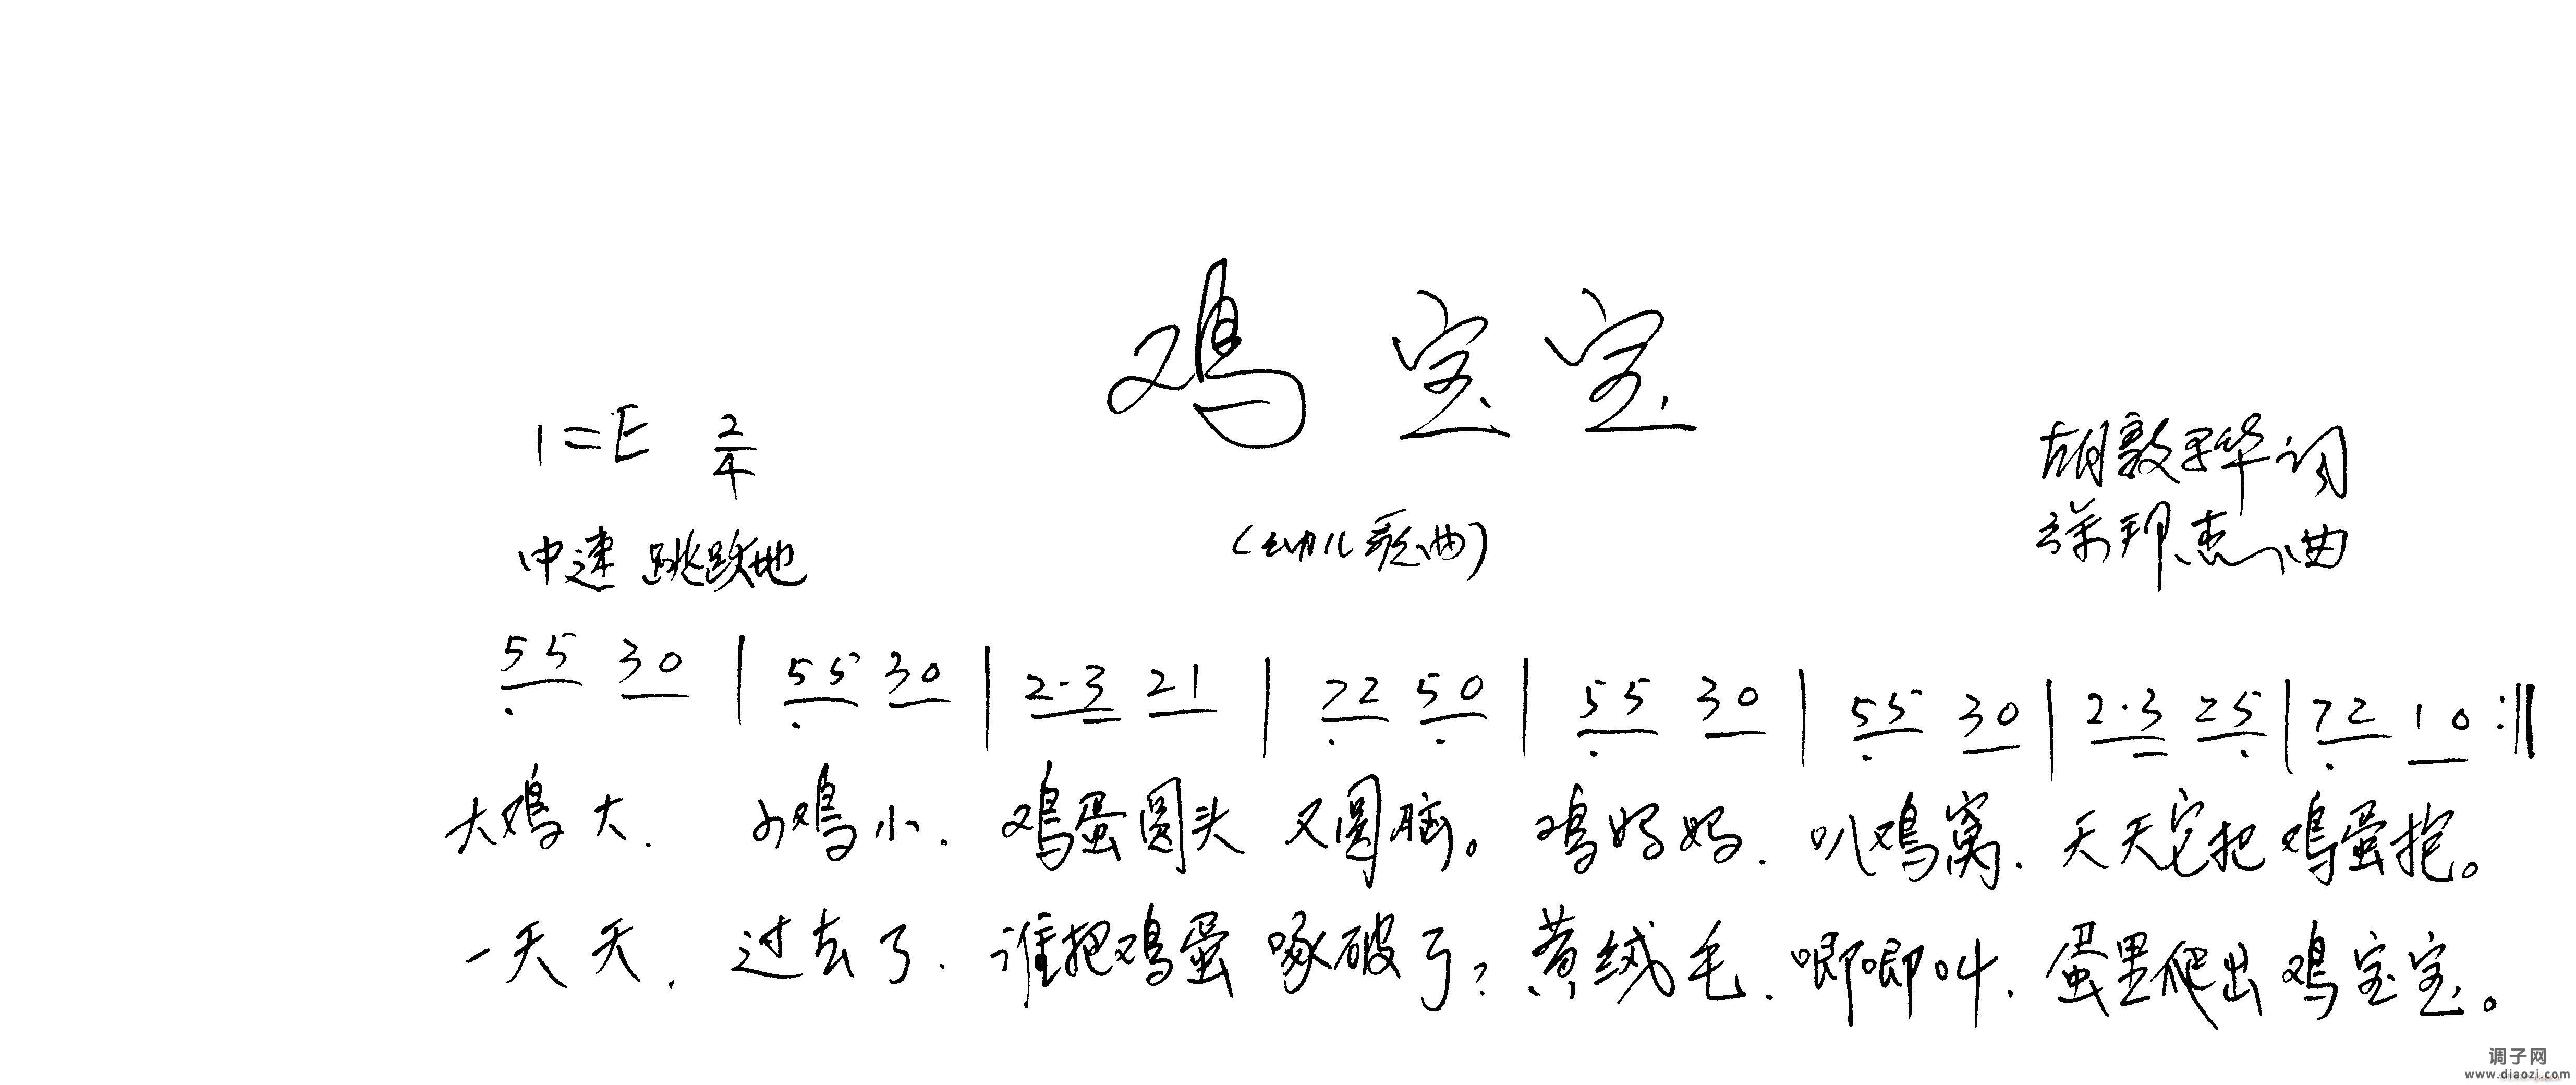 鸡宝宝
1=E 2/4
胡敦骅词
中速 跳跃地
(幼儿歌曲)
邦杰曲
55 30 | 55 30 | 2·3 21 | 72 50 | 55 30 | 55 30 | 2·3 25 | 72 10 :||
大鸡大. 小鸡小. 鸡蛋圆头 又圆脑。 鸡妈妈. 趴鸡窝. 天天它把 鸡蛋抱。
一天天. 过去了. 谁把鸡蛋 啄破了? 黄绒毛. 唧唧叫. 蛋里爬出 鸡宝宝。
调子网
www.diaozi.com